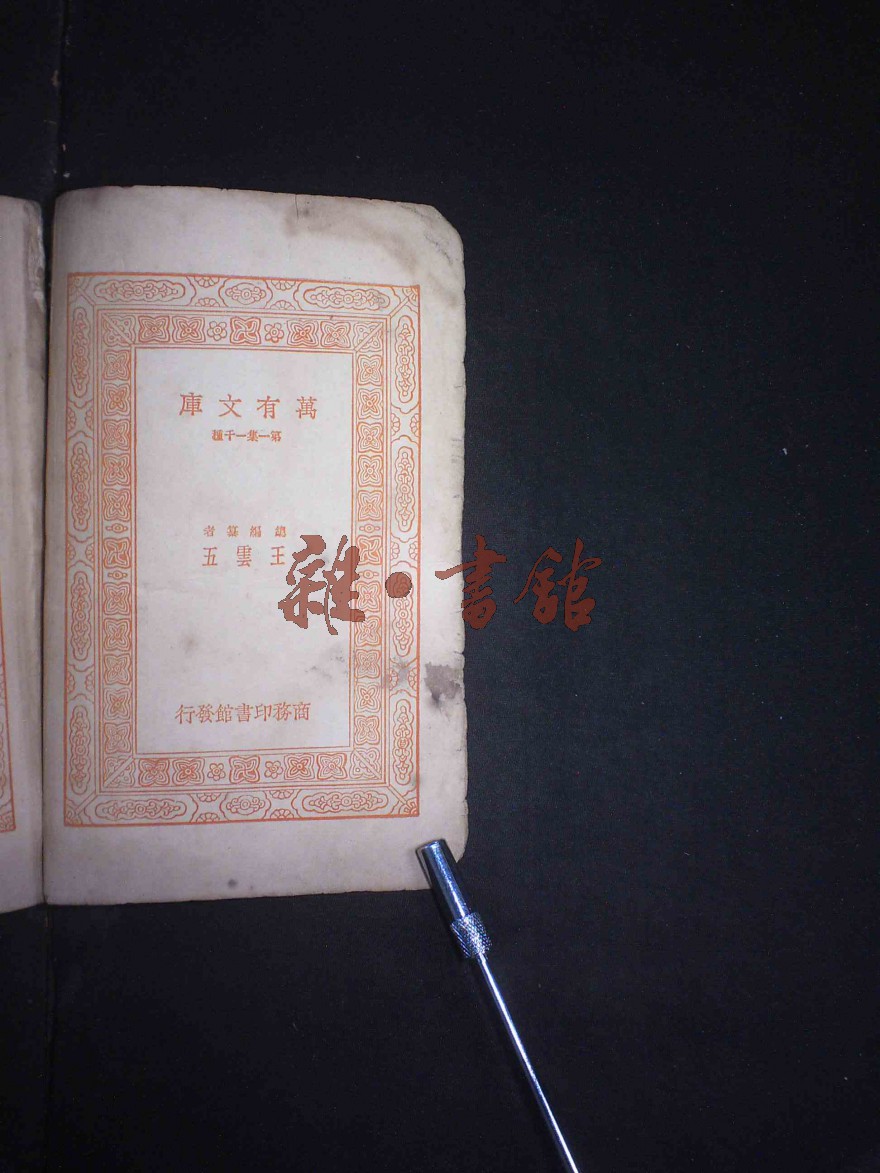 萬有文庫
第一集一千種
總編纂者
王雲五
商務印書館發行
雜·書館